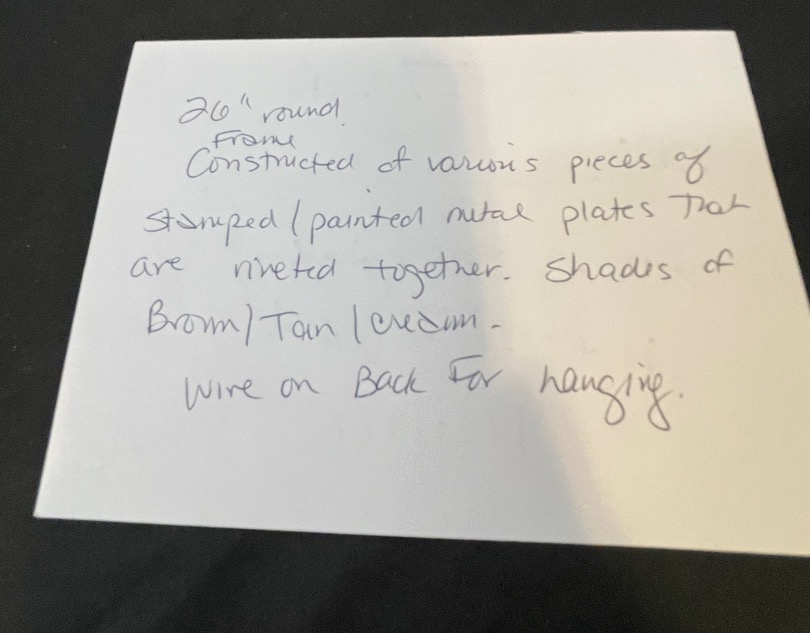 26" round
Frame
Constructed of various pieces of
stamped / painted metal plates that
are riveted together. Shades of
Brown / Tan / cream -
Wire on Back For hanging.